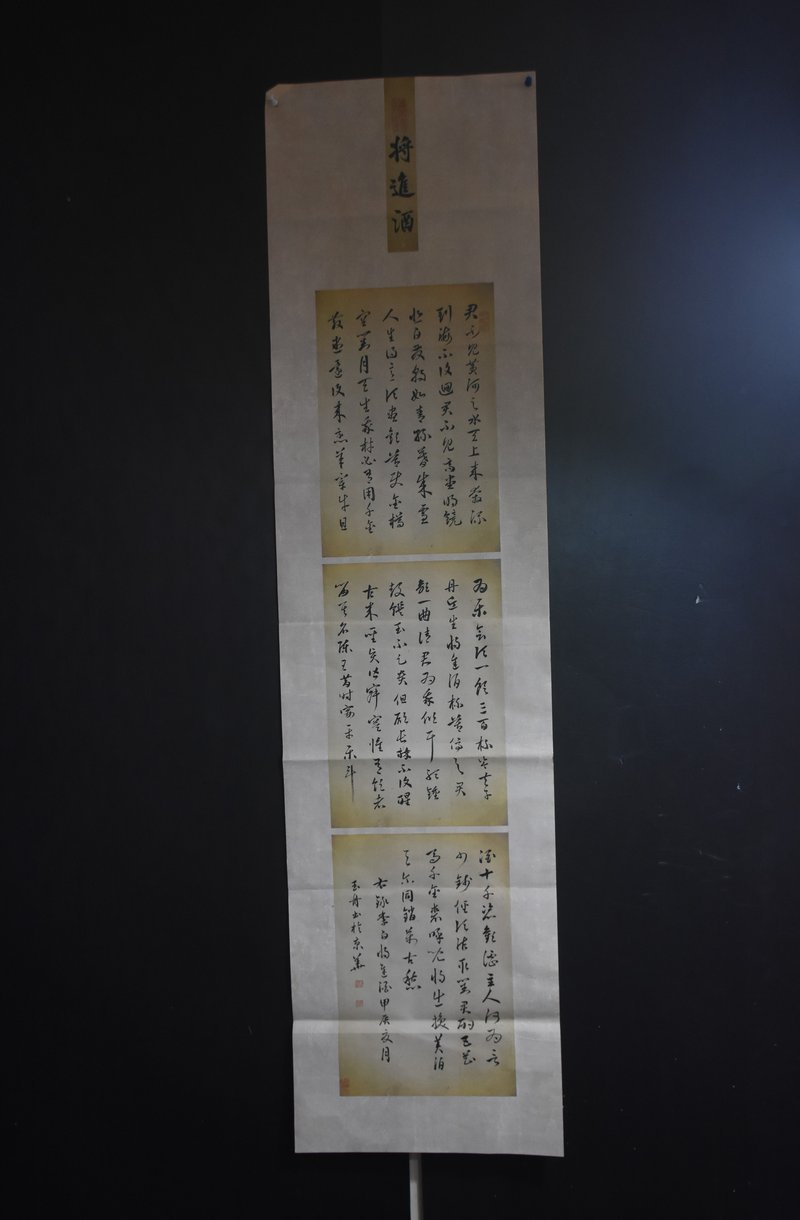 將進酒
君不見黃河之水天上來奔流
到海不復迴君不見高堂明鏡
悲白髮朝如青絲暮成雪
人生得意須盡歡莫使金樽
空對月天生我材必有用千金
散盡還復來烹羊宰牛且
為樂會須一飲三百杯岑夫子
丹丘生將進酒杯莫停與君
歌一曲請君為我傾耳聽鐘
鼓饌玉不足貴但願長醉不復醒
古來聖賢皆寂寞惟有飲者
留其名陳王昔時宴平樂斗
酒十千恣歡謔主人何為言
少錢徑須沽取對君酌五花
馬千金裘呼兒將出換美酒
與爾同銷萬古愁
右錄李白將進酒甲辰夏月
玉舟書於京華